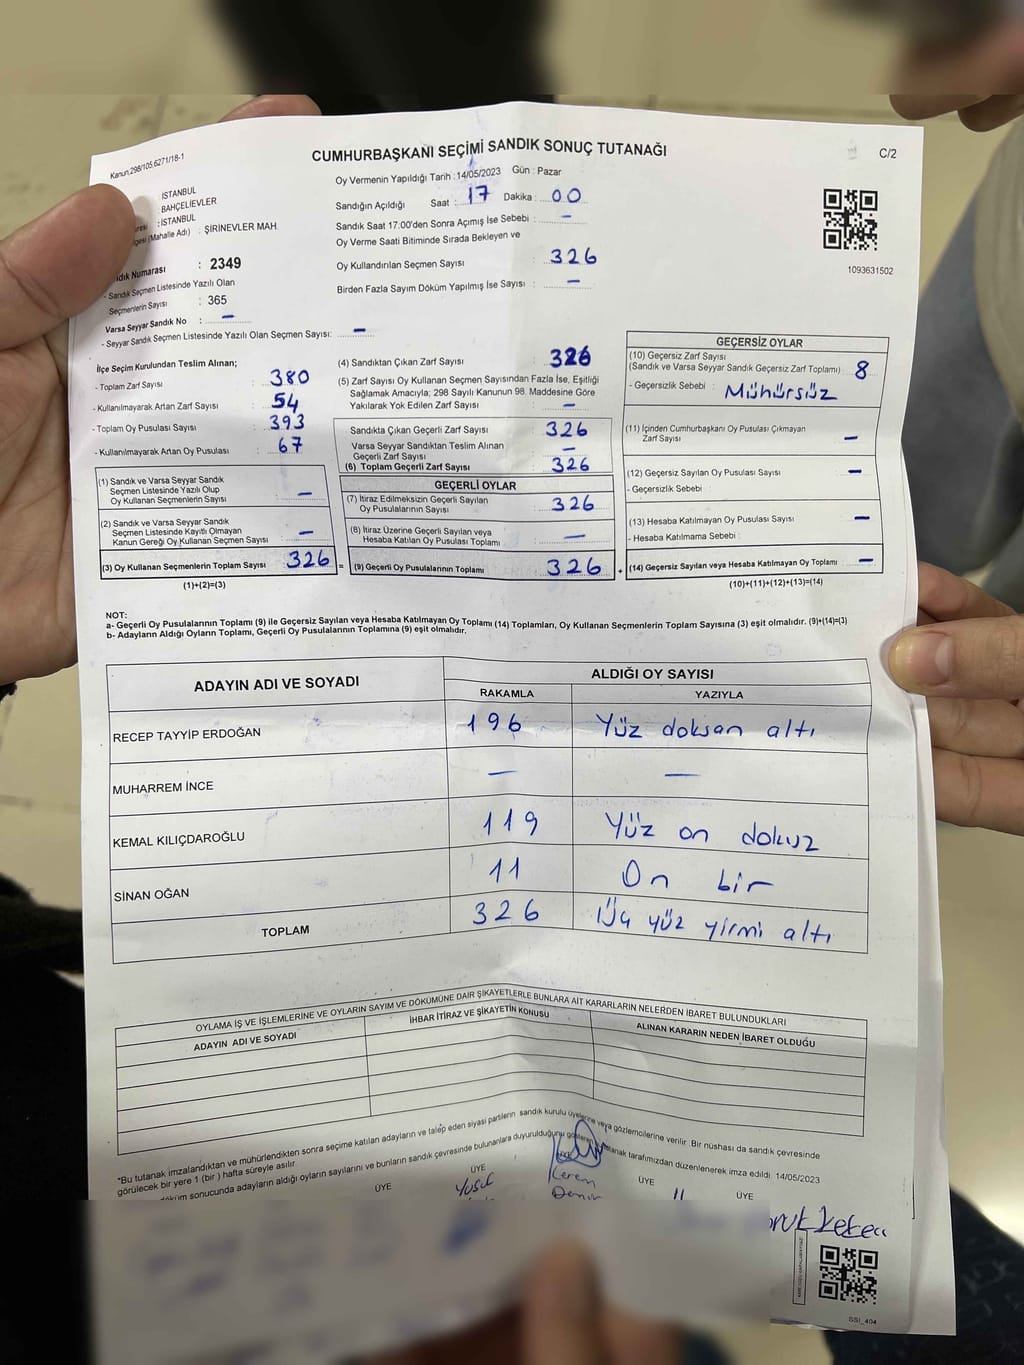 Kanun,298/105,6271/18-1
CUMHURBAŞKANI SEÇİMİ SANDIK SONUÇ TUTANAĞI
C/2
İSTANBUL
BAHÇELİEVLER
: İSTANBUL
(Mahalle Adı) : ŞİRİNEVLER MAH.
Numarası : 2349
- Sandık Seçmen Listesinde Yazılı Olan
Seçmenlerin Sayısı : 365
Varsa Seyyar Sandık No : –
- Seyyar Sandık Seçmen Listesinde Yazılı Olan Seçmen Sayısı: –
Oy Vermenin Yapıldığı Tarih :14/05/2023 Gün : Pazar
Sandığın Açıldığı Saat : 17 Dakika : 00
Sandık Saat 17.00'den Sonra Açımış İse Sebebi : –
Oy Verme Saati Bitiminde Sırada Bekleyen ve
Oy Kullandırılan Seçmen Sayısı : 326
Birden Fazla Sayım Döküm Yapılmış İse Sayısı : –
1093631502
İlçe Seçim Kurulundan Teslim Alınan;
- Toplam Zarf Sayısı : 380
- Kullanılmayarak Artan Zarf Sayısı : 54
- Toplam Oy Pusulası Sayısı : 393
- Kullanılmayarak Artan Oy Pusulası : 67
(1) Sandık ve Varsa Seyyar Sandık
Seçmen Listesinde Yazılı Olup
Oy Kullanan Seçmenlerin Sayısı : –
(2) Sandık ve Varsa Seyyar Sandık
Seçmen Listesinde Kayıtlı Olmayan
Kanun Gereği Oy Kullanan Seçmen Sayısı : –
(3) Oy Kullanan Seçmenlerin Toplam Sayısı 326 =
(1)+(2)=(3)
(4) Sandıktan Çıkan Zarf Sayısı : 326
(5) Zarf Sayısı Oy Kullanan Seçmen Sayısından Fazla İse, Eşitliği
Sağlamak Amacıyla; 298 Sayılı Kanunun 98. Maddesine Göre
Yakılarak Yok Edilen Zarf Sayısı : –
Sandıkta Çıkan Geçerli Zarf Sayısı : 326
Varsa Seyyar Sandıktan Teslim Alınan
Geçerli Zarf Sayısı : –
(6) Toplam Geçerli Zarf Sayısı : 326
GEÇERLİ OYLAR
(7) İtiraz Edilmeksizin Geçerli Sayılan
Oy Pusulalarının Sayısı : 326
(8) İtiraz Üzerine Geçerli Sayılan veya
Hesaba Katılan Oy Pusulası Toplamı : –
(9) Geçerli Oy Pusulalarının Toplamı 326 +
GEÇERSİZ OYLAR
(10) Geçersiz Zarf Sayısı
(Sandık ve Varsa Seyyar Sandık Geçersiz Zarf Toplamı) : 8
- Geçersizlik Sebebi : Mühürsüz
(11) İçinden Cumhurbaşkanı Oy Pusulası Çıkmayan
Zarf Sayısı : –
(12) Geçersiz Sayılan Oy Pusulası Sayısı : –
- Geçersizlik Sebebi :
(13) Hesaba Katılmayan Oy Pusulası Sayısı : –
- Hesaba Katılmama Sebebi :
(14) Geçersiz Sayılan veya Hesaba Katılmayan Oy Toplamı : –
(10)+(11)+(12)+(13)=(14)
NOT:
a- Geçerli Oy Pusulalarının Toplamı (9) ile Geçersiz Sayılan veya Hesaba Katılmayan Oy Toplamı (14) Toplamları, Oy Kullanan Seçmenlerin Toplam Sayısına (3) eşit olmalıdır. (9)+(14)=(3)
b- Adayların Aldığı Oyların Toplamı, Geçerli Oy Pusulalarının Toplamına (9) eşit olmalıdır.
ADAYIN ADI VE SOYADI
ALDIĞI OY SAYISI
RAKAMLA YAZIYLA
RECEP TAYYİP ERDOĞAN 196 Yüz doksan altı
MUHARREM İNCE – –
KEMAL KILIÇDAROĞLU 119 Yüz on dokuz
SİNAN OĞAN 11 On bir
TOPLAM 326 Üç yüz yirmi altı
OYLAMA İŞ VE İŞLEMLERİNE VE OYLARIN SAYIM VE DÖKÜMÜNE DAİR ŞİKAYETLERLE BUNLARA AİT KARARLARIN NELERDEN İBARET BULUNDUKLARI
ADAYIN ADI VE SOYADI İHBAR İTİRAZ VE ŞİKAYETİN KONUSU ALINAN KARARIN NEDEN İBARET OLDUĞU
*Bu tutanak imzalandıktan ve mühürlendikten sonra seçime katılan adayların ve talep eden siyasi partilerin sandık kurulu üyelerine veya gözlemcilerine verilir. Bir nüshası da sandık çevresinde
görülecek bir yere 1 (bir) hafta süreyle asılır.
döküm sonucunda adayların aldığı oyların sayılarını ve bunların sandık çevresinde bulunanlara duyurulduğunu tutanak tarafımızdan düzenlenerek imza edildi. 14/05/2023
ÜYE ÜYE ÜYE ÜYE
Yusuf Kerem
Demir
SSI_404